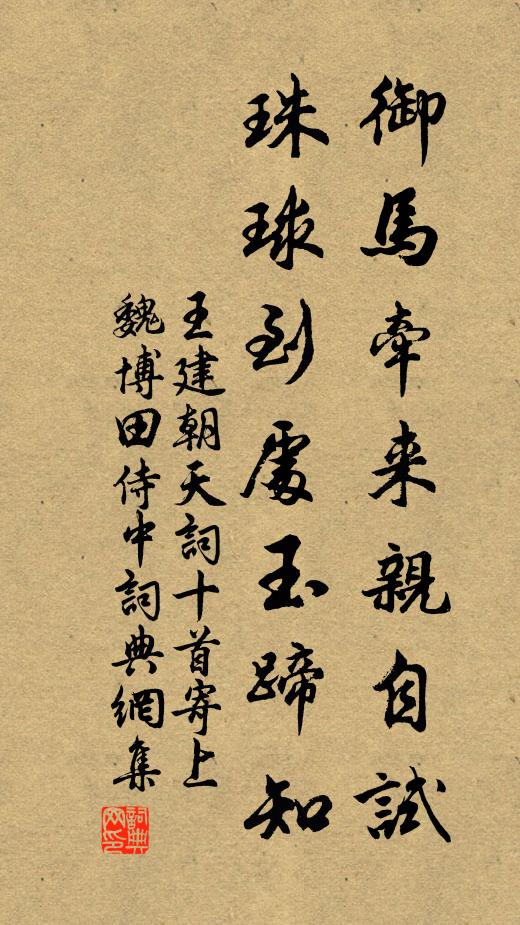 御馬牽来親自試
珠球到處玉蹄知
王建朝天詞十首寄上
魏博田侍中詞典網集
詞典
网印